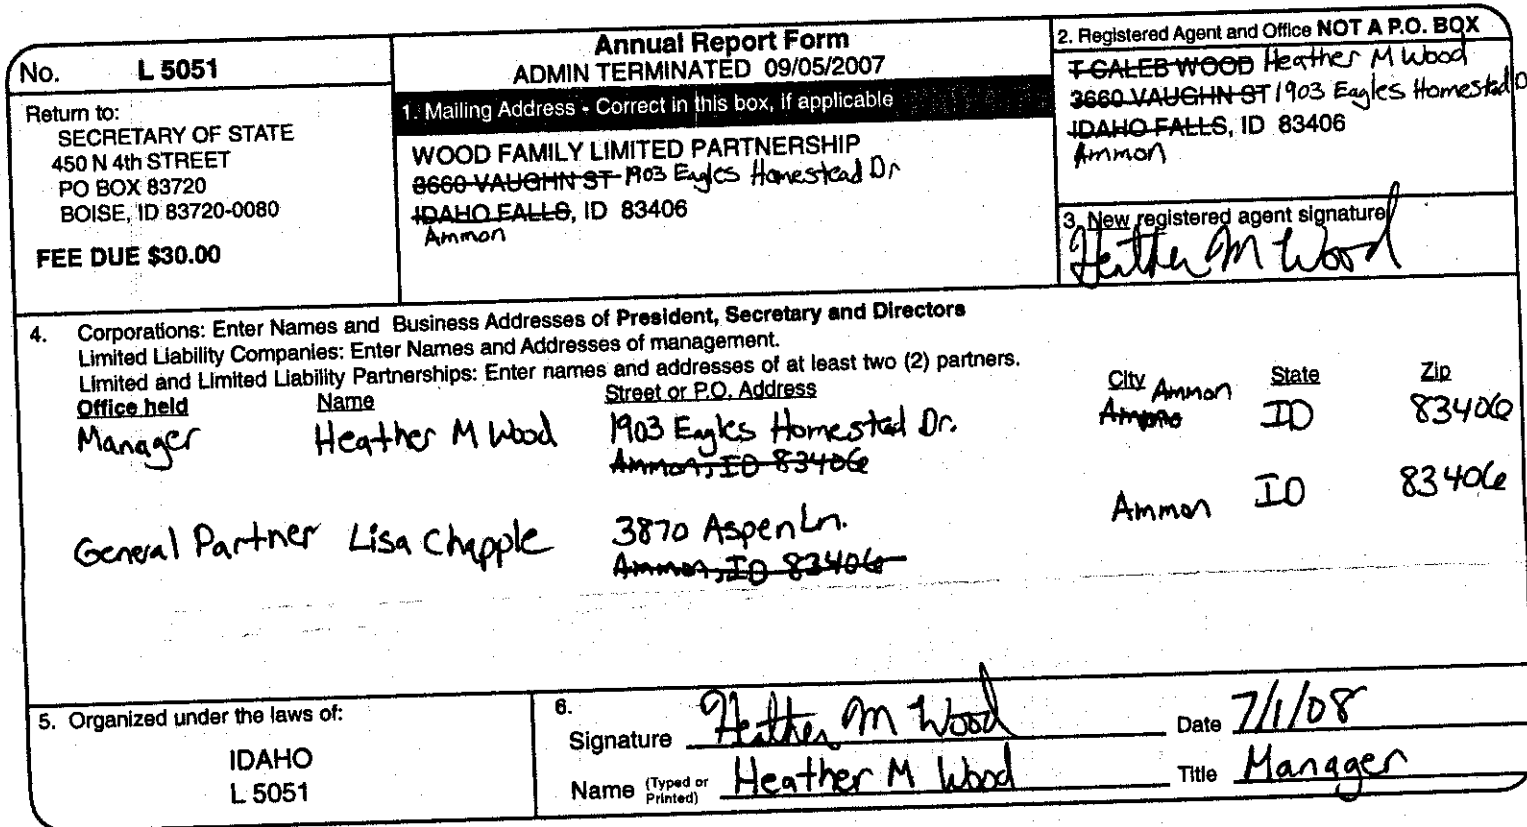 No. L 5051
Return to:
SECRETARY OF STATE
450 N 4th STREET
PO BOX 83720
BOISE, ID 83720-0080
FEE DUE $30.00
Annual Report Form
ADMIN TERMINATED 09/05/2007
1. Mailing Address - Correct in this box, if applicable
WOOD FAMILY LIMITED PARTNERSHIP
3660 VAUGHN ST 1903 Eagles Homestead Dr
IDAHO FALLS, ID 83406
Ammon
2. Registered Agent and Office NOT A P.O. BOX
T CALEB WOOD Heather M Wood
3660 VAUGHN ST 1903 Eagles Homestead D
IDAHO FALLS, ID 83406
Ammon
3. New registered agent signature
Heather M Wood
4. Corporations: Enter Names and Business Addresses of President, Secretary and Directors
Limited Liability Companies: Enter Names and Addresses of management.
Limited and Limited Liability Partnerships: Enter names and addresses of at least two (2) partners.
Office held Name Street or P.O. Address City Ammon State Zip
Manager Heather M Wood 1903 Eagles Homestead Dr. ID 83406
Ammon, ID 83406
General Partner Lisa Chapple 3870 Aspen Ln. Ammon ID 83406
Ammon, ID 83406
5. Organized under the laws of:
IDAHO
L 5051
6.
Signature Heather M Wood Date 7/1/08
Name (Typed or Printed) Heather M Wood Title Manager